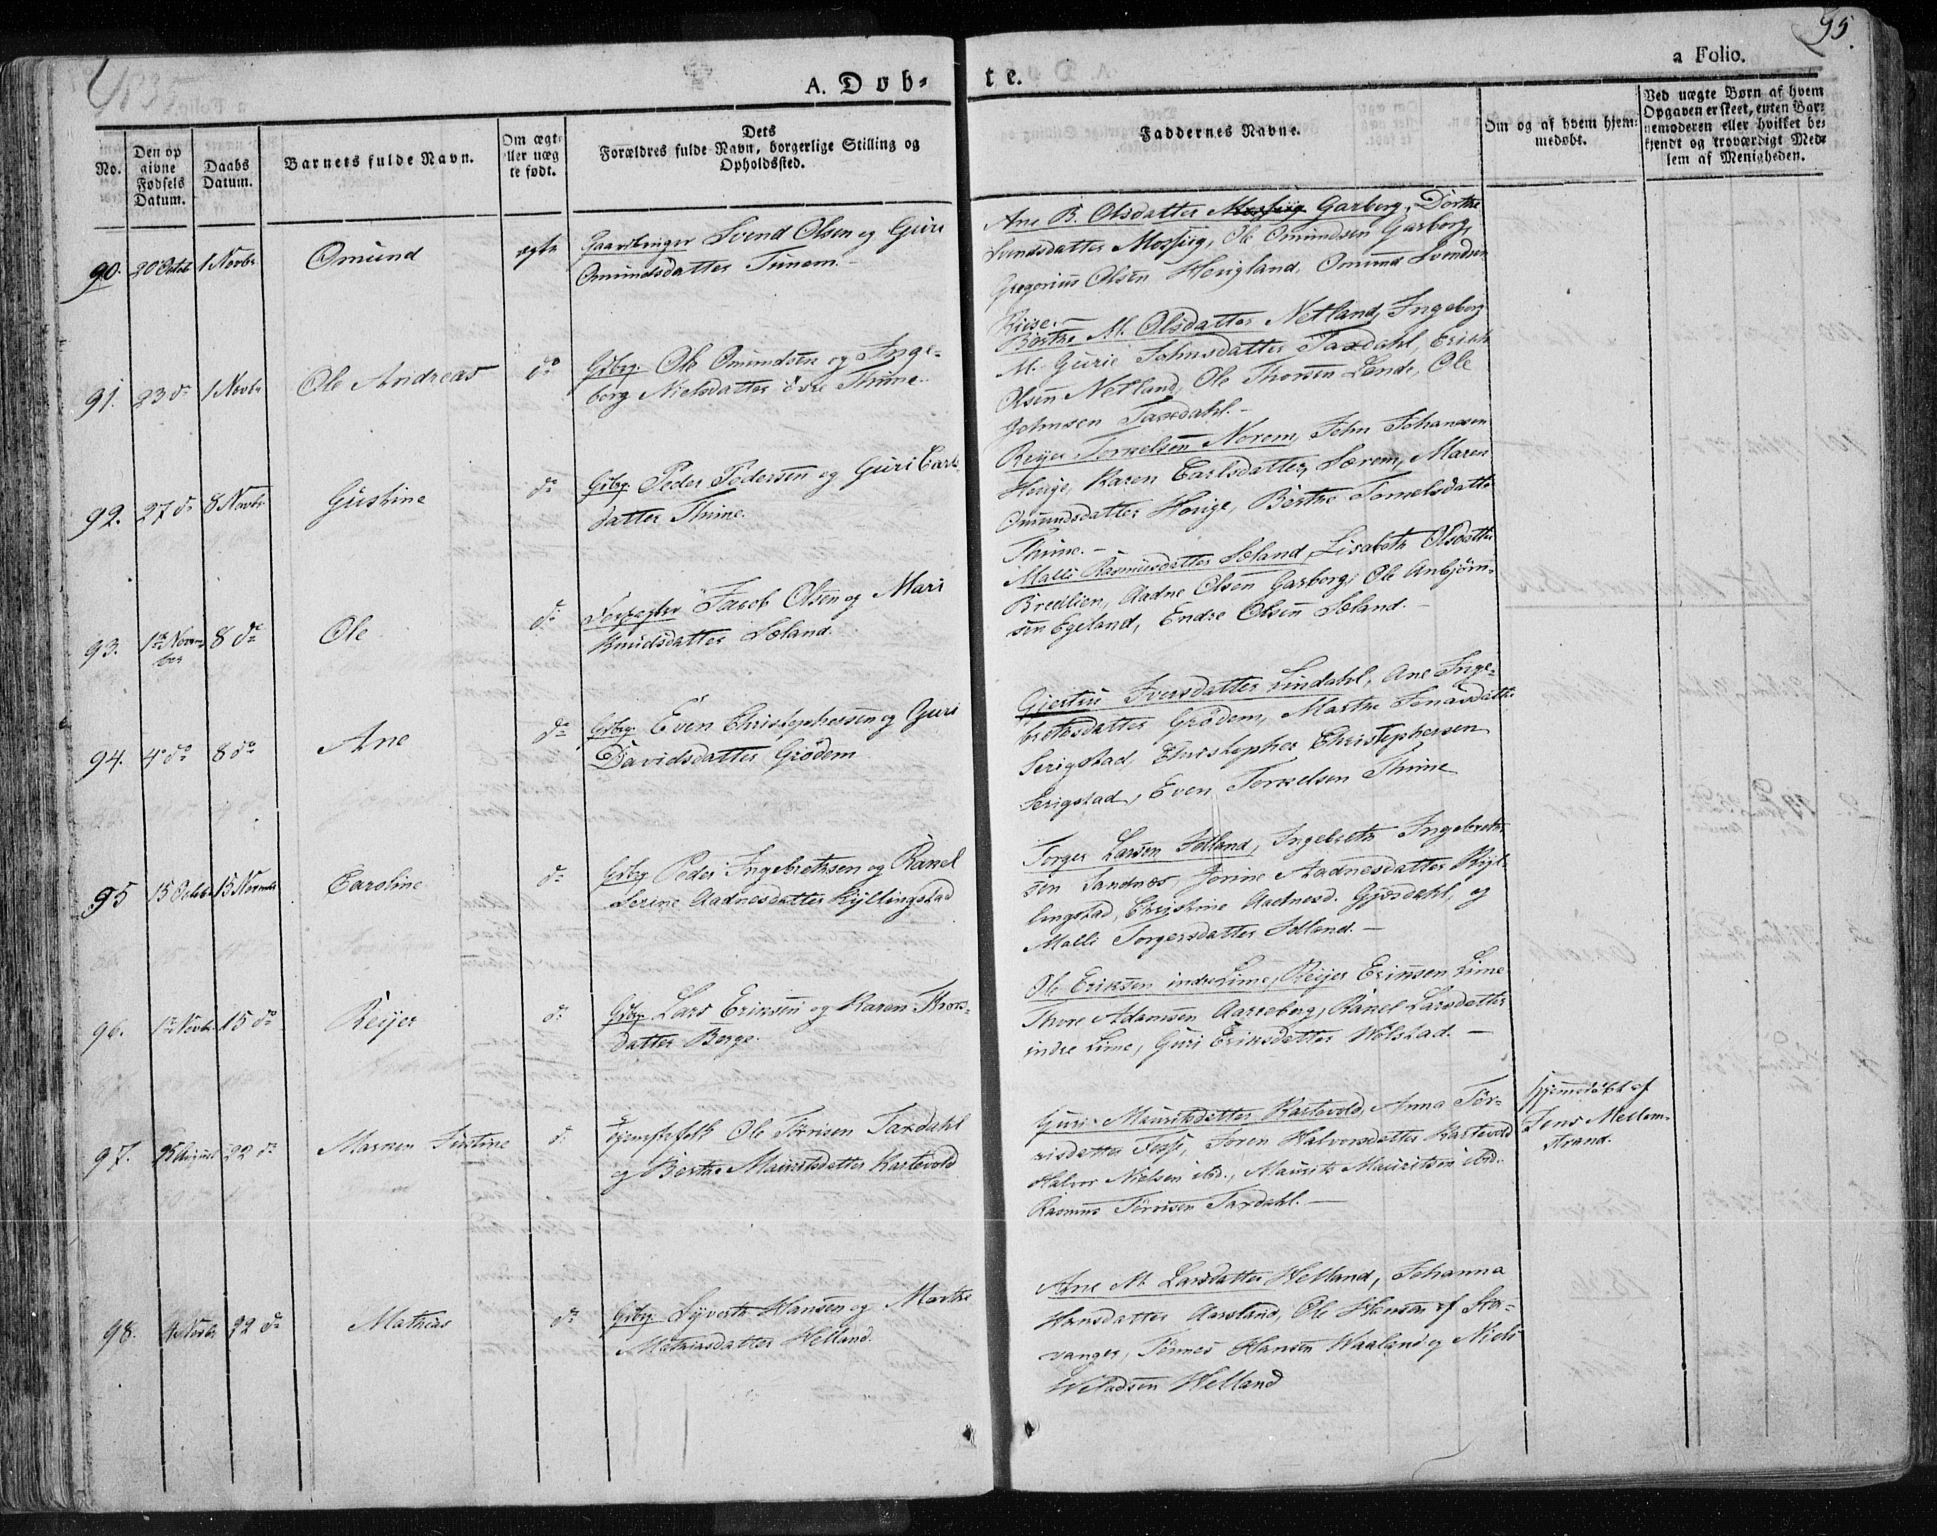 1835
95.
A. Døb-
te.
a Folio.
No.
Den op
givne
Fødsels
Datum.
Daabs
Datum.
Barnets fulde Navn.
Om ægte
eller uæg
te født.
Dets
Forældres fulde Navn, borgerlige Stilling og
Opholdssted.
Faddernes Navne.
Om og af hvem hjem-
medøbt.
Ved uægte Børn af hvem
Opgaven er skeet, enten Bar-
nemoderen eller hvilket be-
kjendt og troværdigt Med-
lem af Menigheden.
90. 20 Octob 1 Novbr Omund ægte
Gaardbruger Svend Olsen og Guri
Omundsdatter Tunem.
Ane B. Olsdatter Garborg, Dorthe
Olsen Omundsen Garborg,
Gregorius Olsen Houglan, Omund Svendsen
Riise.
91. 23 do 1 Novbr Ole Andreas do
Gbrg. Ole Omundsen og Inge-
borg Nielsdatter övre Thime.
Berthe M. Olsdatter Netland, Ingeborg
M. Gurie Johnsdatter Taxdahl, Erich
Olsen Netland, Ole Thorsen Lende, Ole
Johnsen Taxdahl.
92. 27 do 8 Novbr Gustine do
Gbrg. Peder Pedersen og Guri Carls
datter Thime.
Reijer Torkelsen Norem, John Johannesen
Houge, Karen Carlsdatter Særem, Maren
Omundsdatter Houge, Berthe Tormelsdatter
Thime.
93. 1te Novem-
ber 8 do Ole do
Jacob Olsen og Mari
Knudsdatter Søland.
Malli Rasmusdatter Søland, Lisabeth Olsdatter
Bredlien, Aadne Olsen Garborg, Ole Anbjørn-
sen Egeland, Endre Olsen Søland.
94. 4e do 8 do Ane do
Gbrg. Even Christophersen og Guri
Davidsdatter Grödem
Gjertru Iversdatter Lindahl, Ane Inge-
bretsdatter Grödem, Marthe Jonasdatter
Serigstad, Christopher Christophersen
Serigstad, Even Torkelsen Thime
95 15 Octob 15 Novembr Caroline do
Gbrg. Peder Ingebrethsen og Ranel
Serine Aadnesdatter Kyllingstad
Torger Larsen Idland, Ingebreth Ingebreth
sen Sandnæs, Jorine Aadnesdatter Kyl-
lingstad, Christine Aadnesd. Gjøsdahl, og
Malli Torgersdatter Idland.
96. 1te Novbr 15 do Reijer do
Gbrg. Lars Eriksen og Karen Thors-
datter Berge.
Ole Eriksen indre Lime, Reijer Eriksen Lime
Thore Adamsen Aareberg, Ranel Larsdatter
indre Lime, Guri Eriksdatter Wölstad.
97. 25 August 22 do Maren Justine do
Ole Törrisen Taxdahl
og Berthe Mauritsdatter Kartevold
Guri Mauritsdatter Kartevold, Anna Tör-
risdatter Foss, Joren Halvorsdatter Kartevold
Halvor Nielsen ibd., Maurits Mauritsen ibd.
Rasmus Törrisen Taxdahl.
Hjemmedöbt af
Jens Mellem-
strand.
98. 4 Novbr 22 do Mathias do
Gbrg. Syverth Hansen og Marthe
Mathiasdatter Helland.
Ane M. Larsdatter Helland, Johanna
Hansdatter Aarsland, Ole Hansen af Sta-
vanger, Tönnes Hansen Waaland og Niels
Welladsen Helland